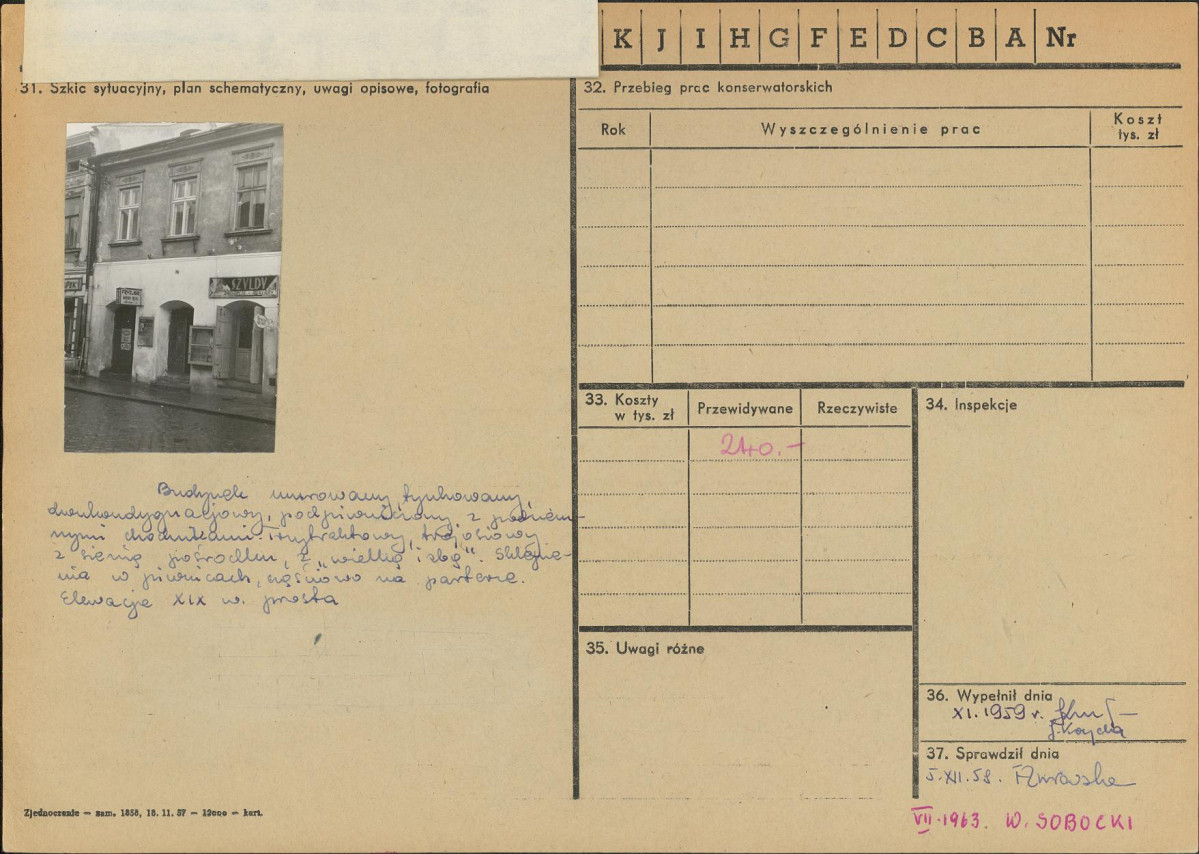 K J I H G F E D C B A Nr
31. Szkic sytuacyjny, plan schematyczny, uwagi opisowe, fotografia
SZYLDY
Budynek murowany, tynkowany,
dwukondygnacjowy, podpiwniczony, z
chodnikami. trójosiowy
z sienią pośrodku, z „wielką izbą". Sklepie-
nia w piwnicach, częściowo na parterze.
Elewacja XIX w. prosta
Zjednoczenie — zam. 1858, 18. 11. 57 — 12000 — kart.
32. Przebieg prac konserwatorskich
Rok Wyszczególnienie prac Koszt
tys. zł
33. Koszty
w tys. zł Przewidywane Rzeczywiste
240.-
34. Inspekcje
35. Uwagi różne
36. Wypełnił dnia
XI. 1959 r.
37. Sprawdził dnia
5.XII.58.
VII.1963. W. SOBOCKI